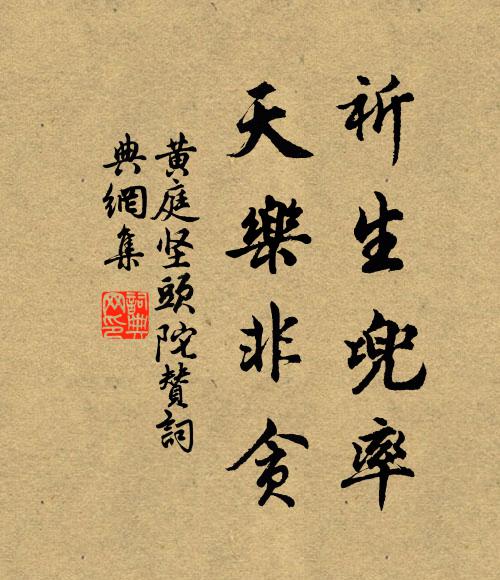 祈生兜率
天樂非貪
黃庭坚頭陀贊詞
典網集
詞典网印